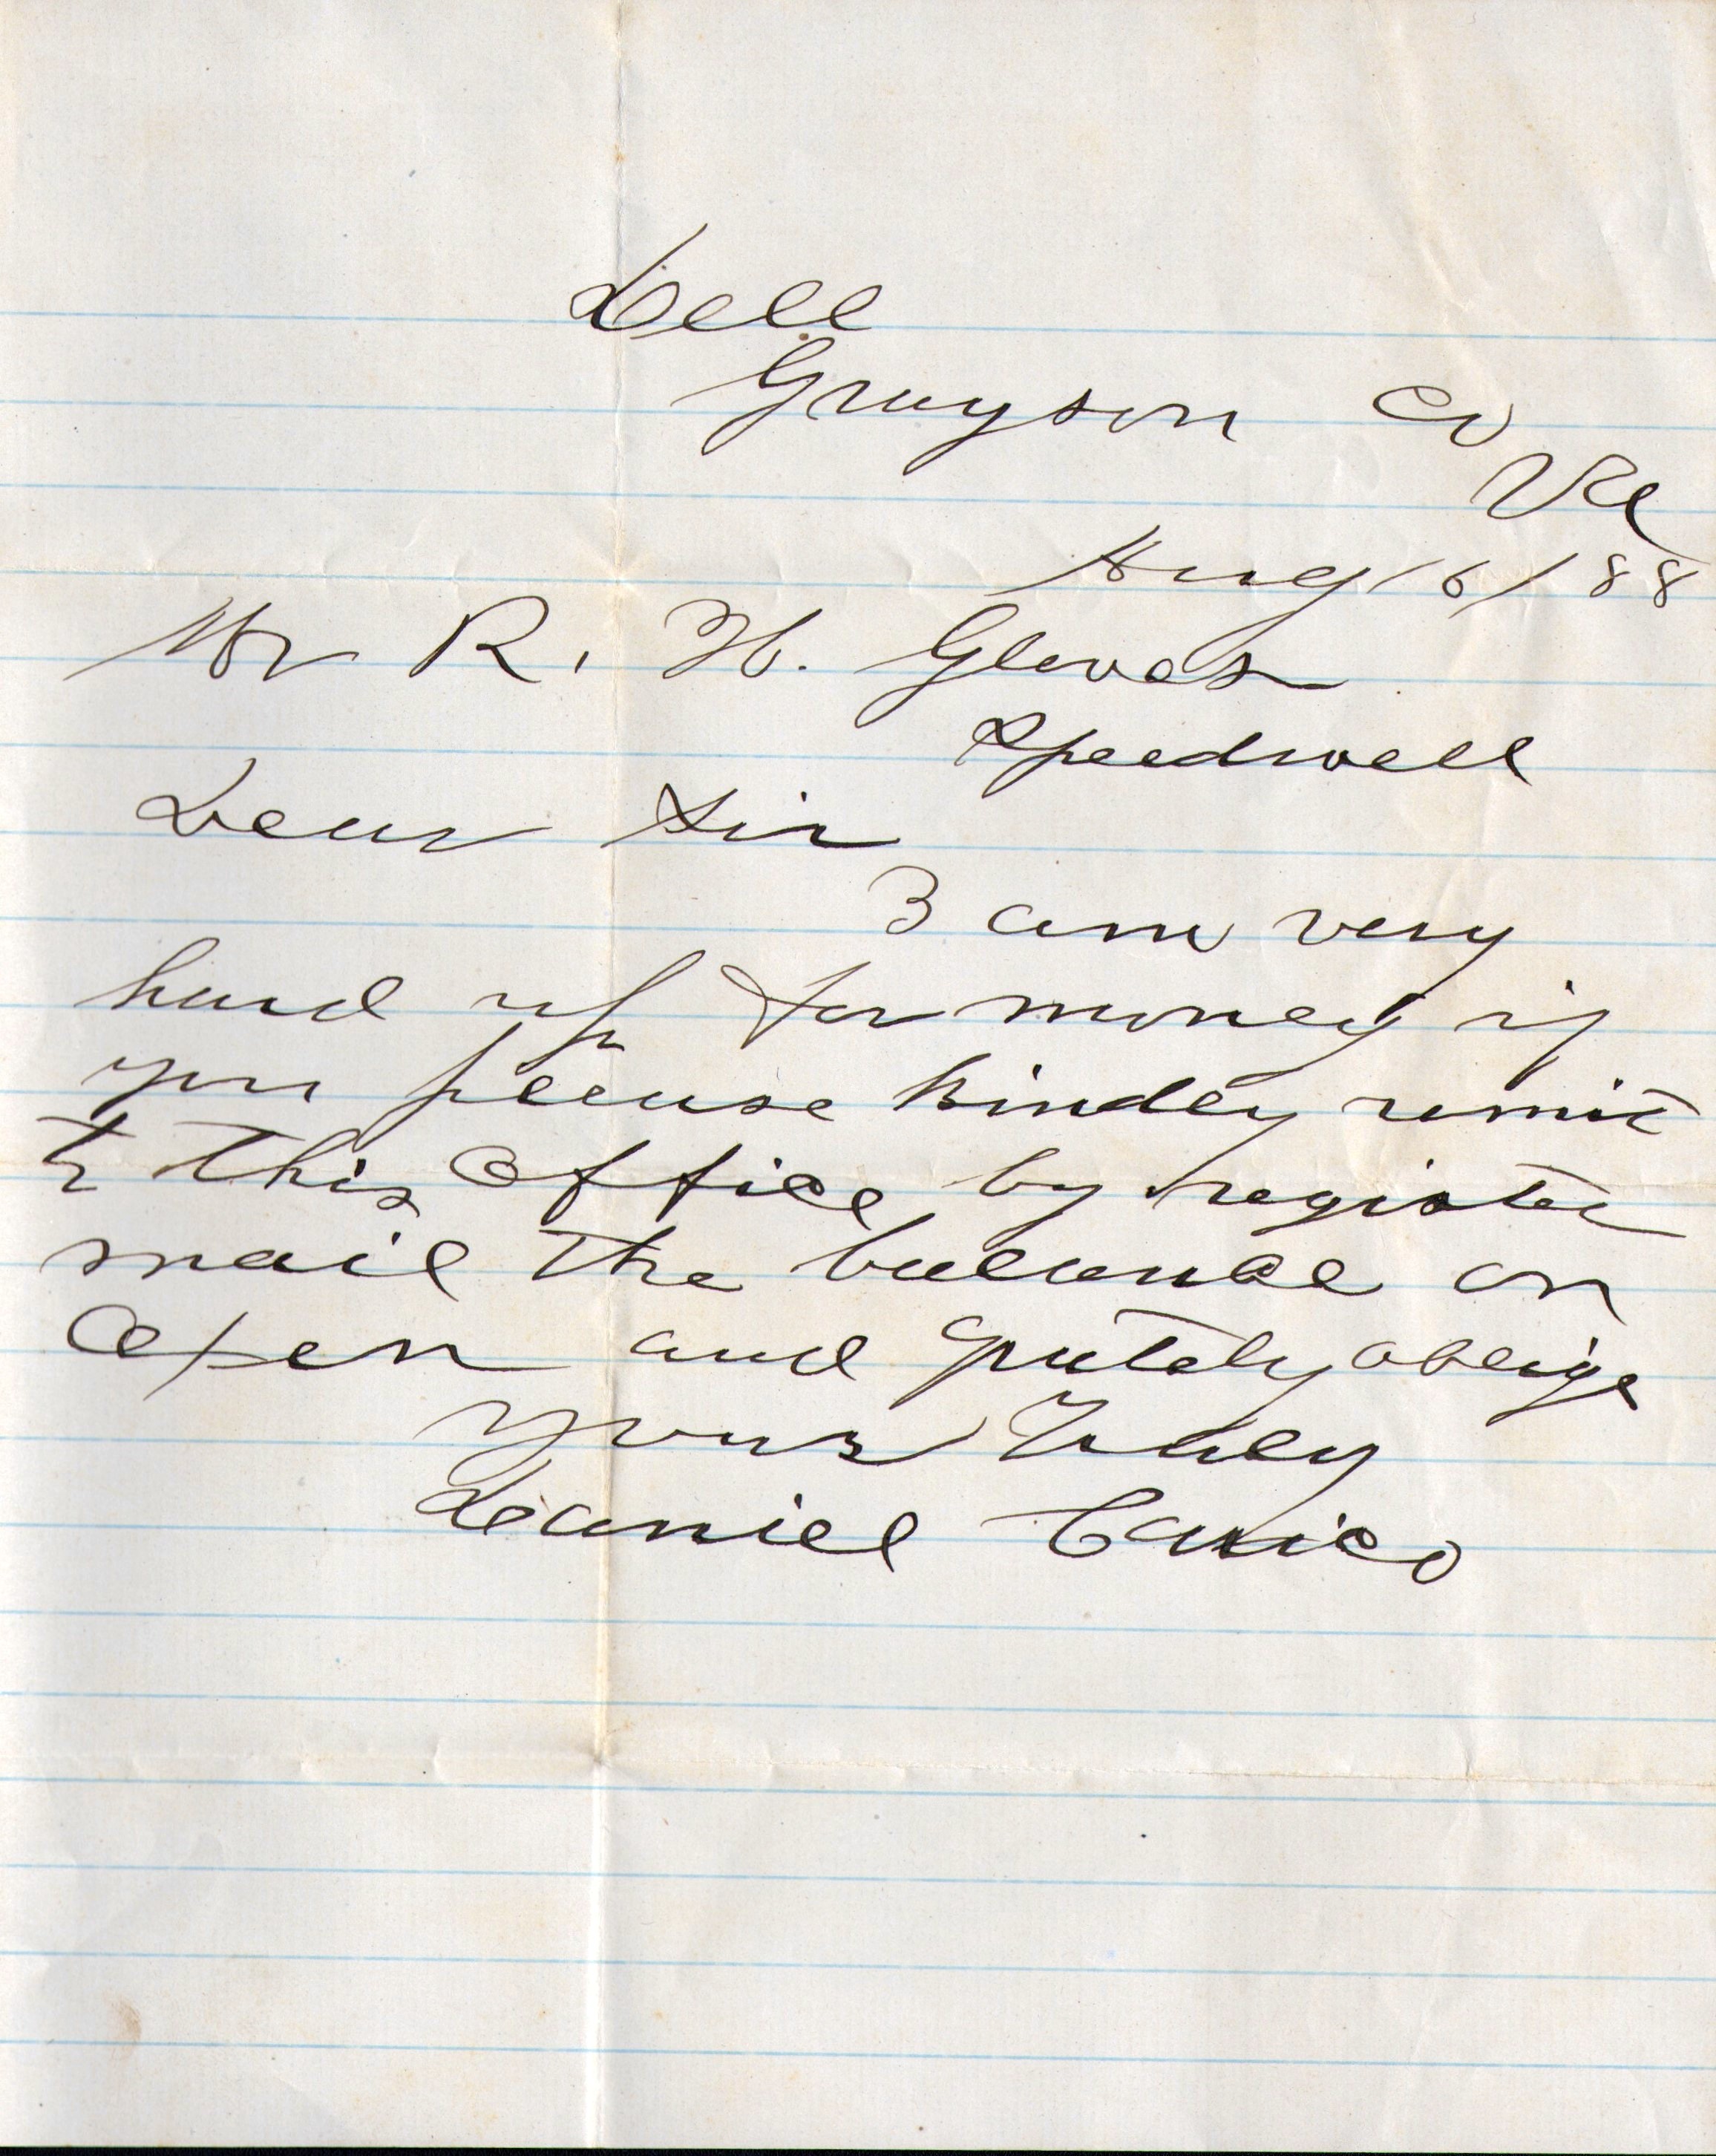 Dell
Grayson Co
Va
Aug / 6 / 88
Mr R. H. Gleves
Speedwell
Dear Sir
I am very
hard up for money if
you please kindly remit
to this office by register
mail the balance on
Oxen and grately oblige
Yours Truley
Daniel Carico